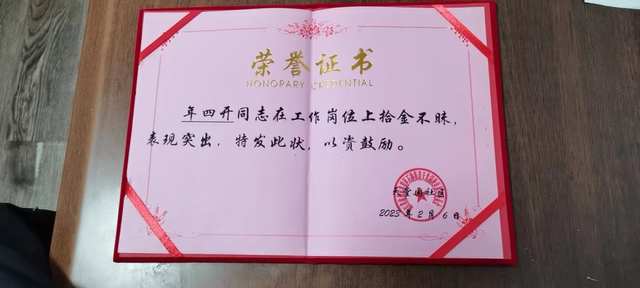 荣誉证书
HONOPARY CREDENTIAL
年四开同志在工作岗位上拾金不昧，
表现突出，特发此状，以资鼓励。
社区
2023年2月6日